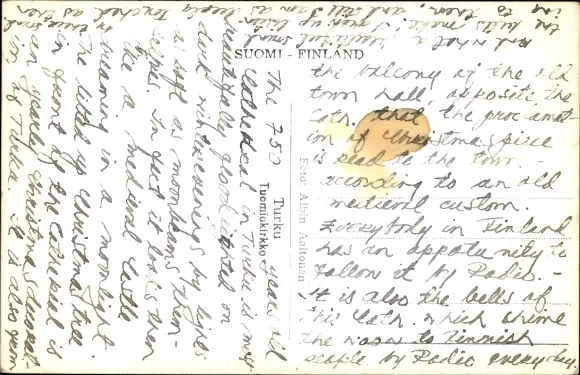 SUOMI - FINLAND
Turku
Tuomiokirkko
Foto: Albin Aaltonen
The 750 years old
Cathedral in Turku is most
beautifully flood lighted on
dark winterevenings by lights
as soft as moonbeams them-
selves. In fact it looks then
like a medieval castle
dreaming in a moonlight
The litted up Christmas tree
in front of the Cathedral is
an yearly Christmas decorat-
ion of Turku. It is also from
the balcony of the old
town hall, opposite the
Cath. that the proclamat-
ion of Christmas peace
is read to the town -
according to an old
medieval custom.
Everybody in Finland
has an opportunity to
follow it by Radio. -
It is also the bells of
this Cath. which chime
the noon to Finnish
people by Radio every day.
And what a beautiful sound
the bells make! I grew up listen-
ing to them, and still I am as deeply touched as